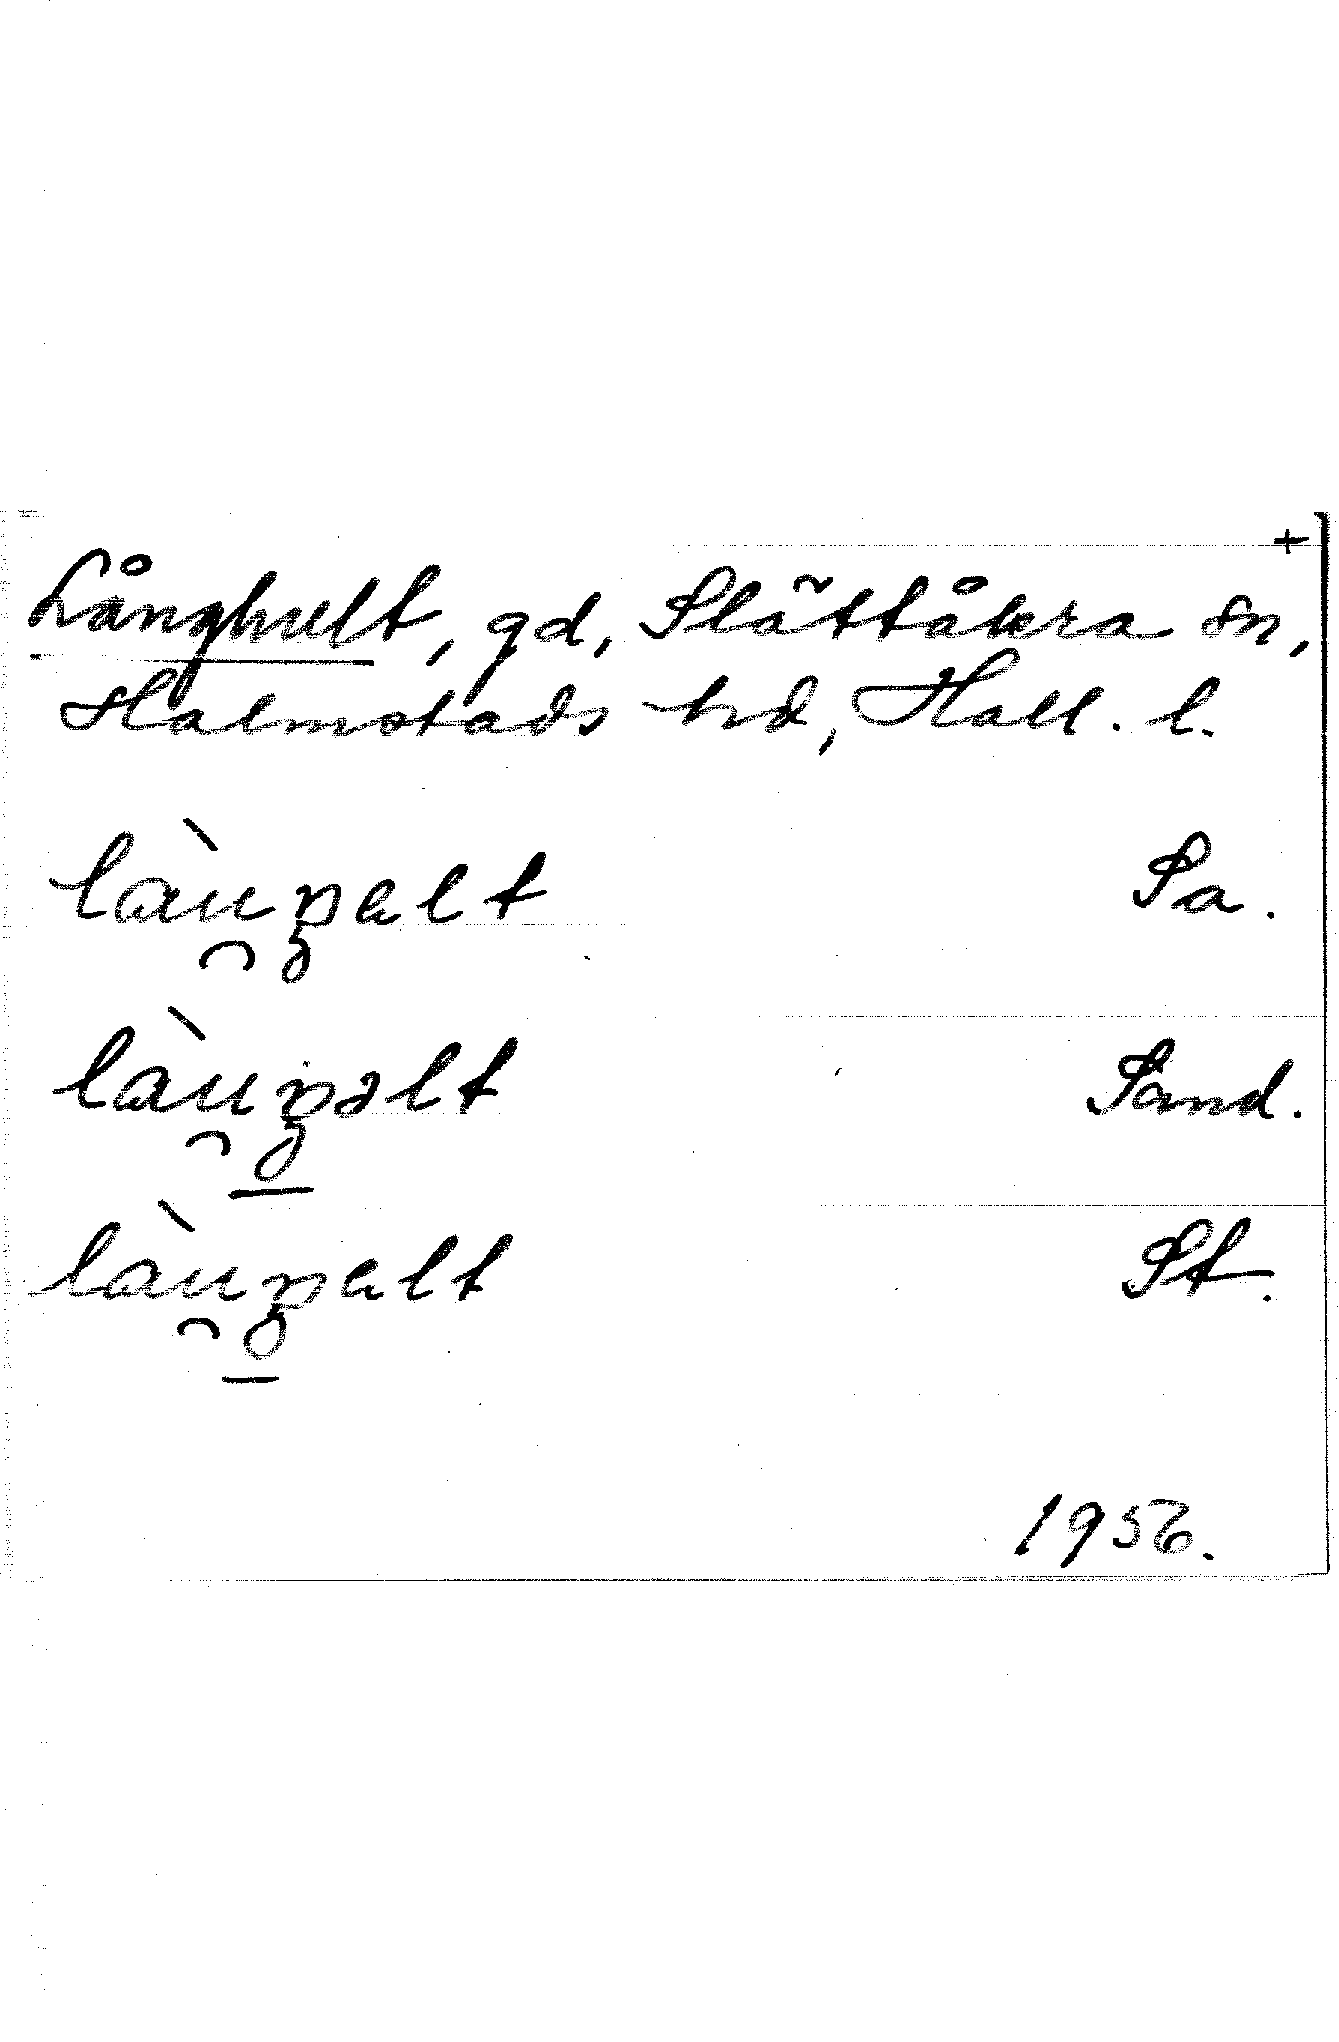 +
Långhult, gd, Slättåkra sn,
Halmstads hrd, Hall. l.
làu̯ŋɐlt Sa.
làu̯ŋəlt Sand.
làu̯ŋɐlt St.
1956.